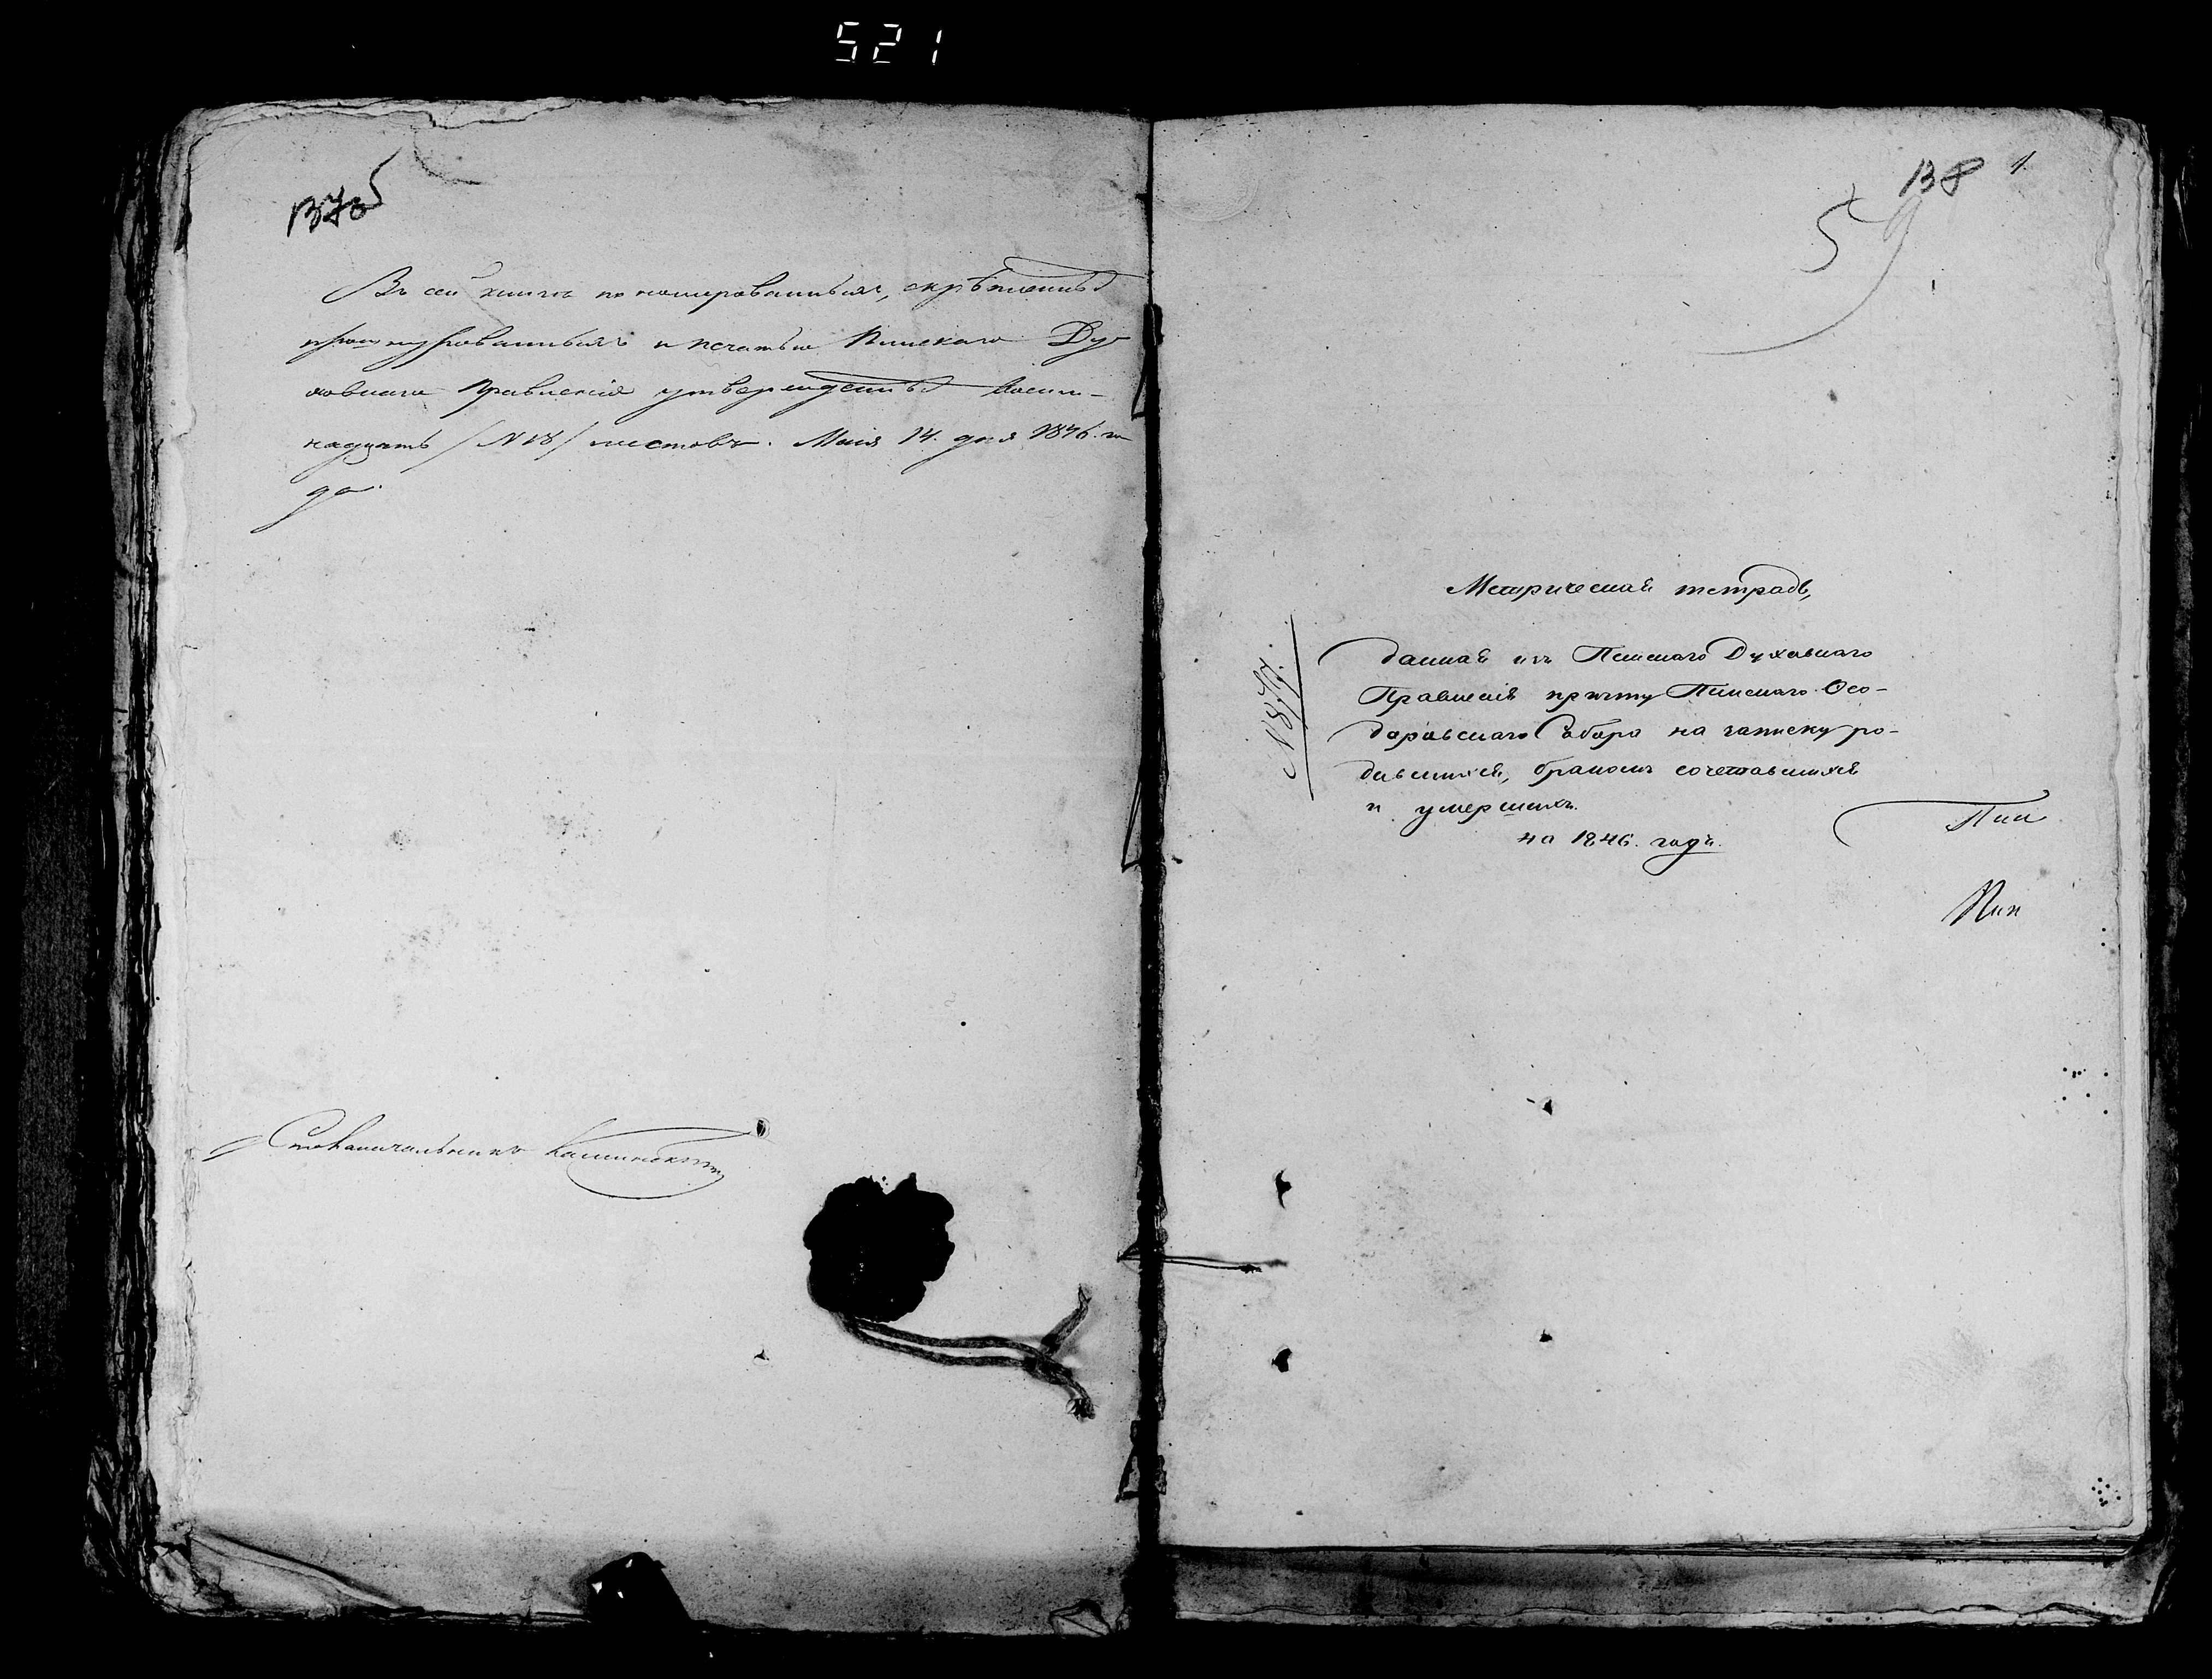 521
137об
Въ сей книгѣ номерованныхъ, скрѣпленныхъ
прошнурованныхъ и печатью Пинскаго Ду-
ховнаго Правленія утвержденныхъ восем-
надцать /№ 18/ листовъ. Маія 14. дня 1846. го
да.
Столоначальникъ
138 1.
59
Метрическая тетрадь,
данная изъ Пинскаго Духовнаго
Правленія причту Пинскаго Ѳео-
доровскаго Собора на записку ро-
дившихся, бракомъ сочетавшихся
и умершихъ.
на 1846. годъ.
№ 877.
Пин
Пин